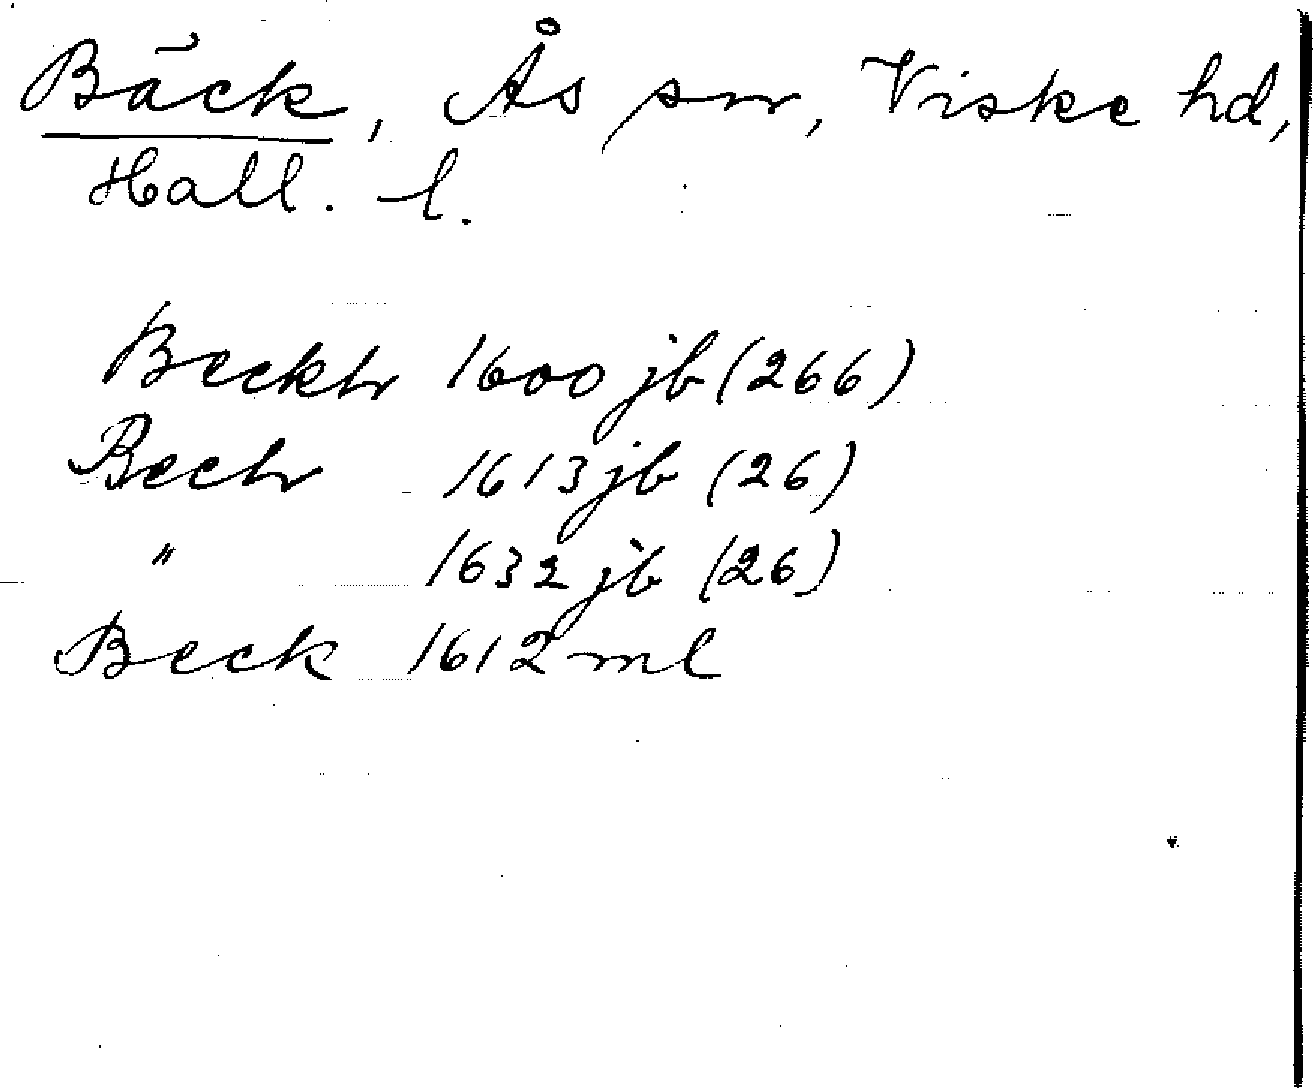 Bäck, Ås sn, Viske hd,
Hall. l.
Beckh 1600 jb (266)
Bech 1613 jb (26)
" 1632 jb (26)
Beck 1612 ml